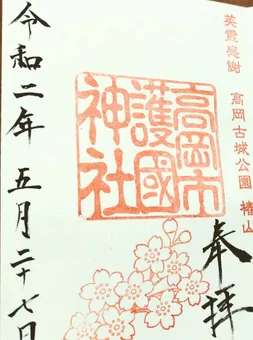 英霊感謝
高岡古城公園 椿山
奉拝
高岡市
護國
神社
令和二年 五月二十七日